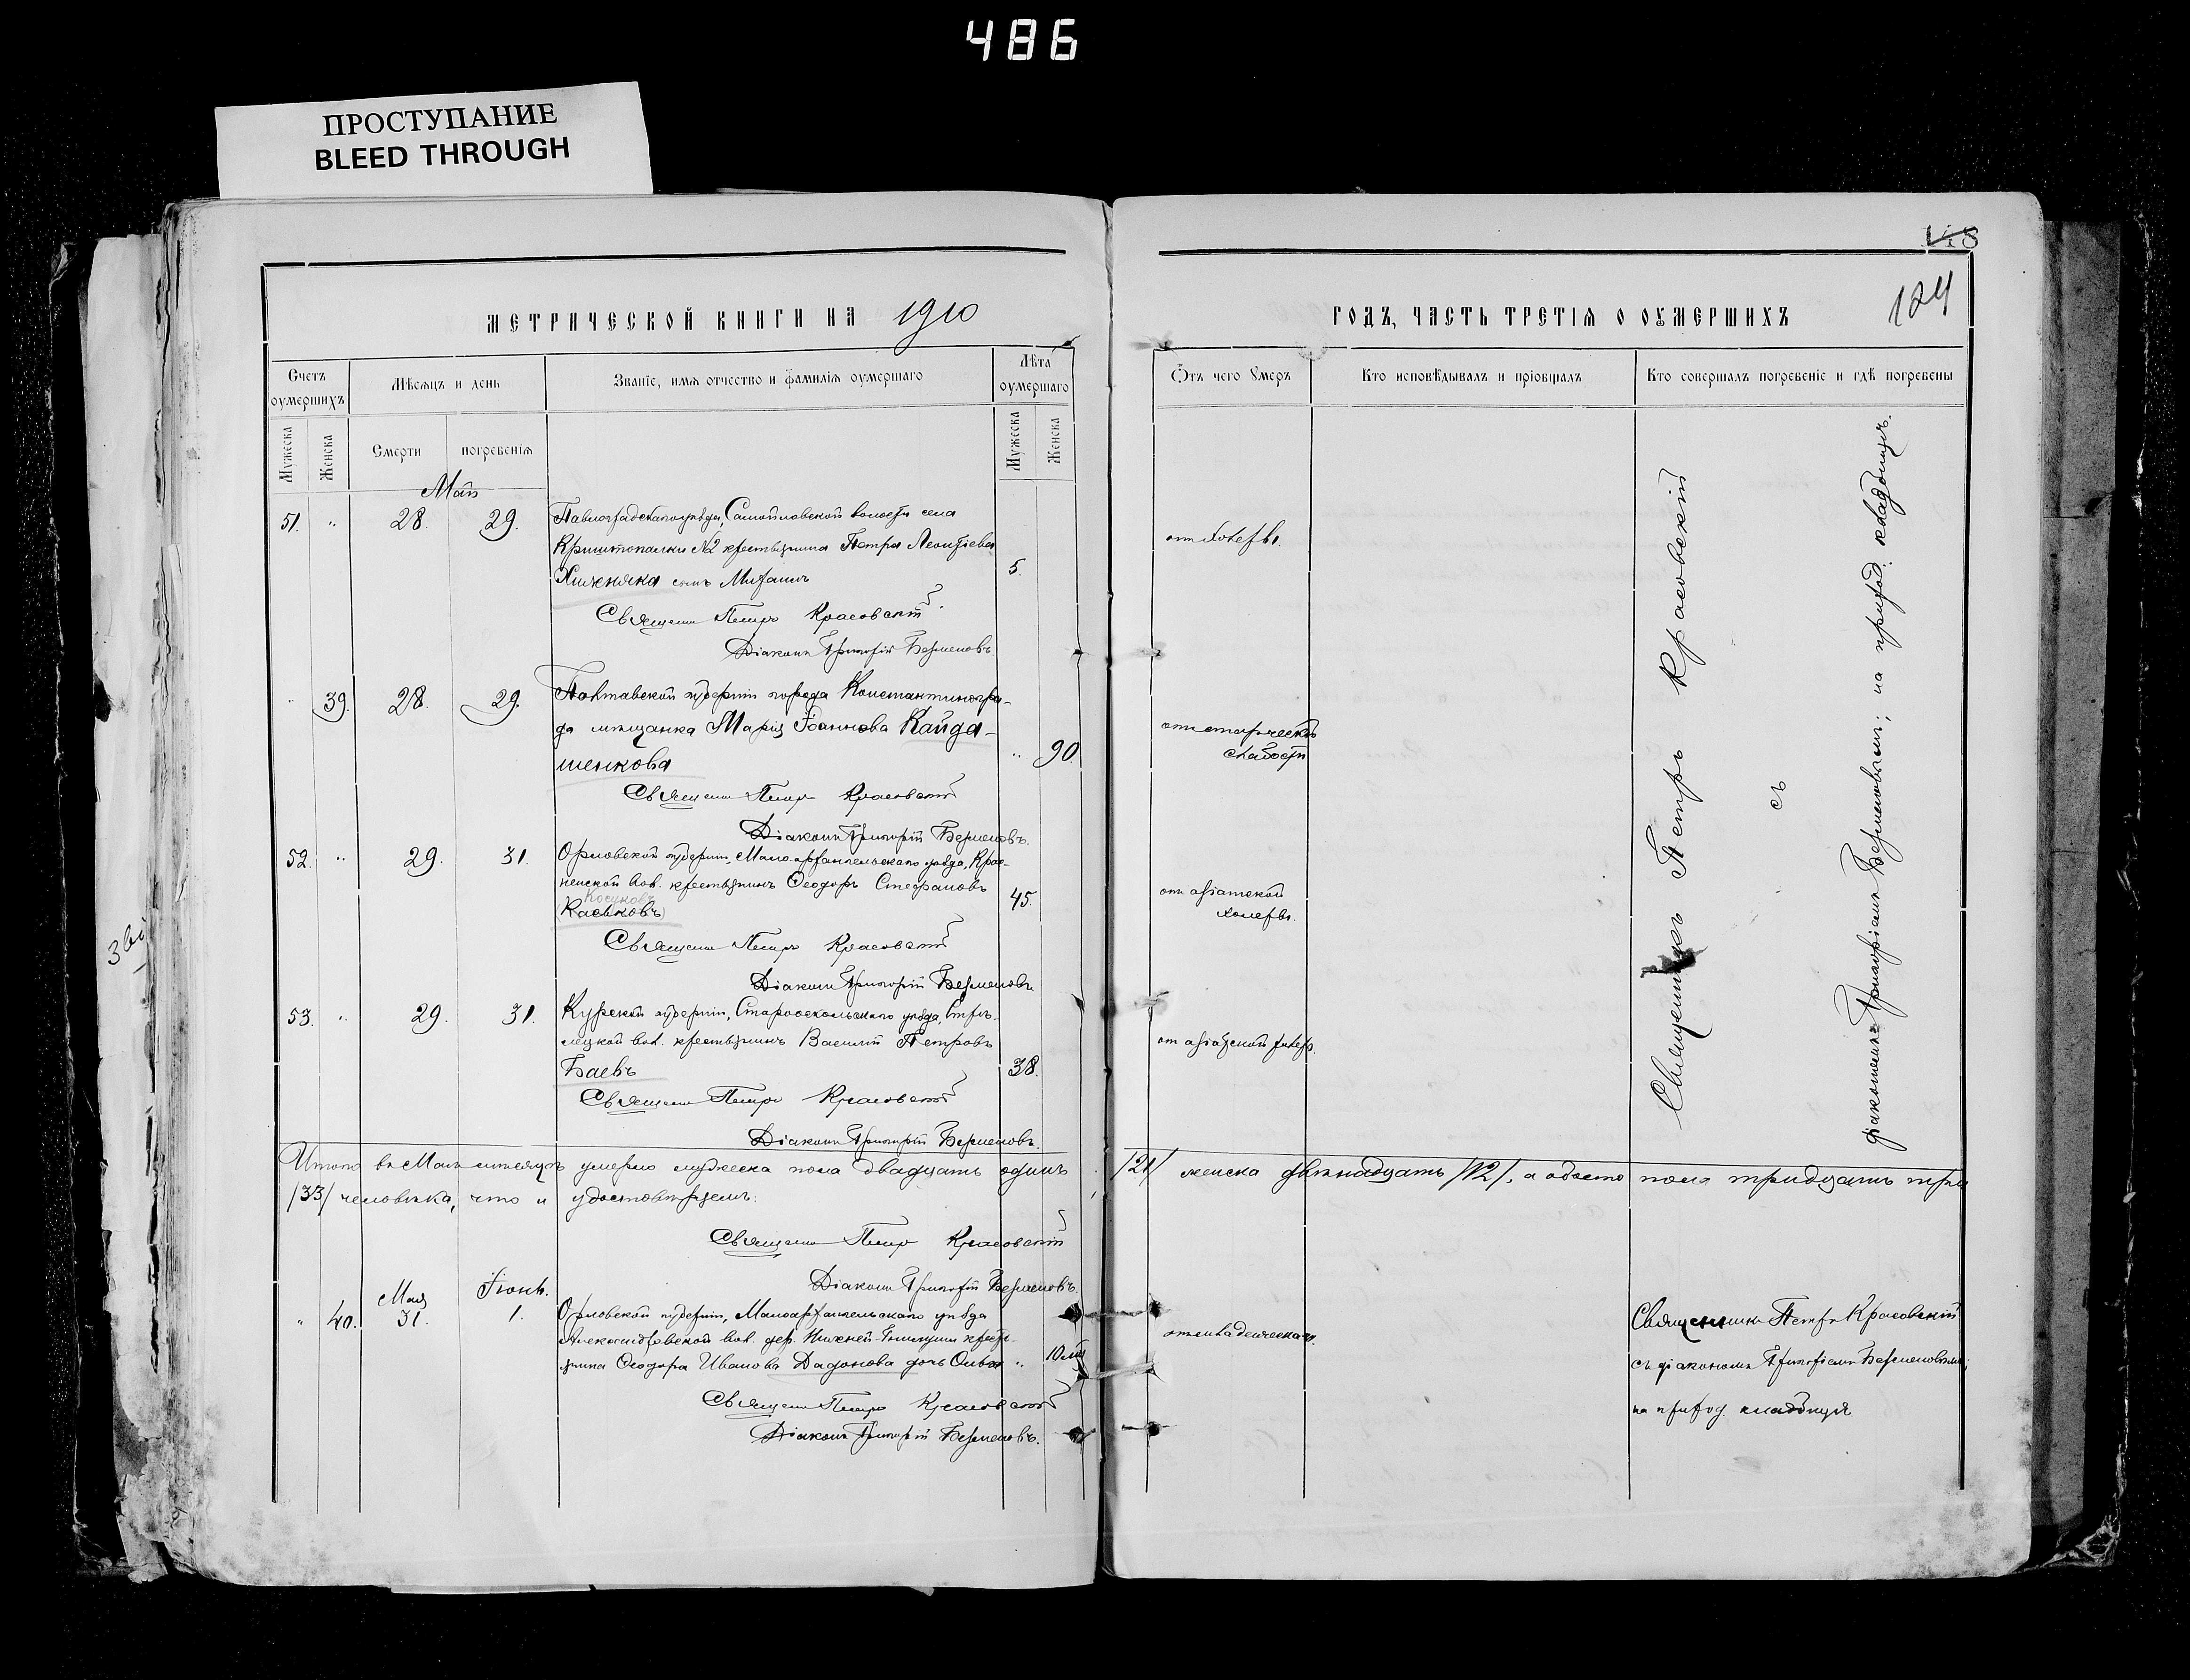 486
ПРОСТУПАНИЕ
BLEED THROUGH
148
124
МЕТРИЧЕСКОЙ КНИГИ НА 1910
ГОДЪ, ЧАСТЬ ТРЕТІЯ О ОУМЕРШИХЪ
Счетъ оумершихъ
Мѣсяцъ и день
Званіе, имя отчество и фамилія оумершаго
Лѣта оумершаго
Отъ чего Умеръ
Кто исповѣдывалъ и пріобщалъ
Кто совершалъ погребеніе и гдѣ погребены
Мужеска
Женска
Смерти
погребенія
Мужеска
Женска
Май
51. " 28. 29. Павлоградскаго уѣзда, Самойловской волости села
Криштопалки №2 крестьянина Петра Леонтіева
Хижняка сынъ Митрофанъ 5. отъ холеры.
Священ. Петръ Красовскій
Діаконъ Григорій Верменовъ
" 39. 28. 29. Полтавской губерніи города Константиногра-
да мѣщанка Марія Іоаннова Кайда-
шенкова " 90. отъ старческой
слабости
Священ. Петръ Красовскій
Діаконъ Григорій Верменовъ.
52. " 29. 31. Орловской губерніи, Малоархангельскаго уѣзда,
вол. крестьянинъ Ѳеодоръ Стефановъ
Косуковъ
Каськовъ 45. отъ азіатской
холеры.
Священ. Петръ Красовскій
Діаконъ Григорій Верменовъ
53. " 29. 31. Курской губерніи, Старооскольскаго уѣзда, Стрѣ-
лецкой вол. крестьянинъ Василій Петровъ
Баевъ 38. отъ азіатской холеры.
Священ. Петръ Красовскій
Діаконъ Григорій Верменовъ.
Священникъ Петръ Красовскій
съ
діакономъ Григоріемъ Верменовымъ; на приход. кладбищѣ.
Итого въ Маѣ мѣсяцѣ умерло мужеска пола двадцать одинъ /21/ женска двѣнадцать /12/, а обоего пола тридцать три
/33/ человѣка, что и удостовѣряемъ.
Священ. Петръ Красовскій
Діаконъ Григорій Верменовъ.
" 40. Мая 31. Іюнь. 1. Орловской губерніи, Малоархангельскаго уѣзда
вол. дер. Нижней- крестья-
нина Ѳеодора Иванова Дадонова дочь Ольга " 10 м.
Священ. Петръ Красовскій
Діаконъ Григорій Верменовъ.
Священникъ Петръ Красовскій
съ діакономъ Григоріемъ Верменовымъ;
на приход. кладбищѣ